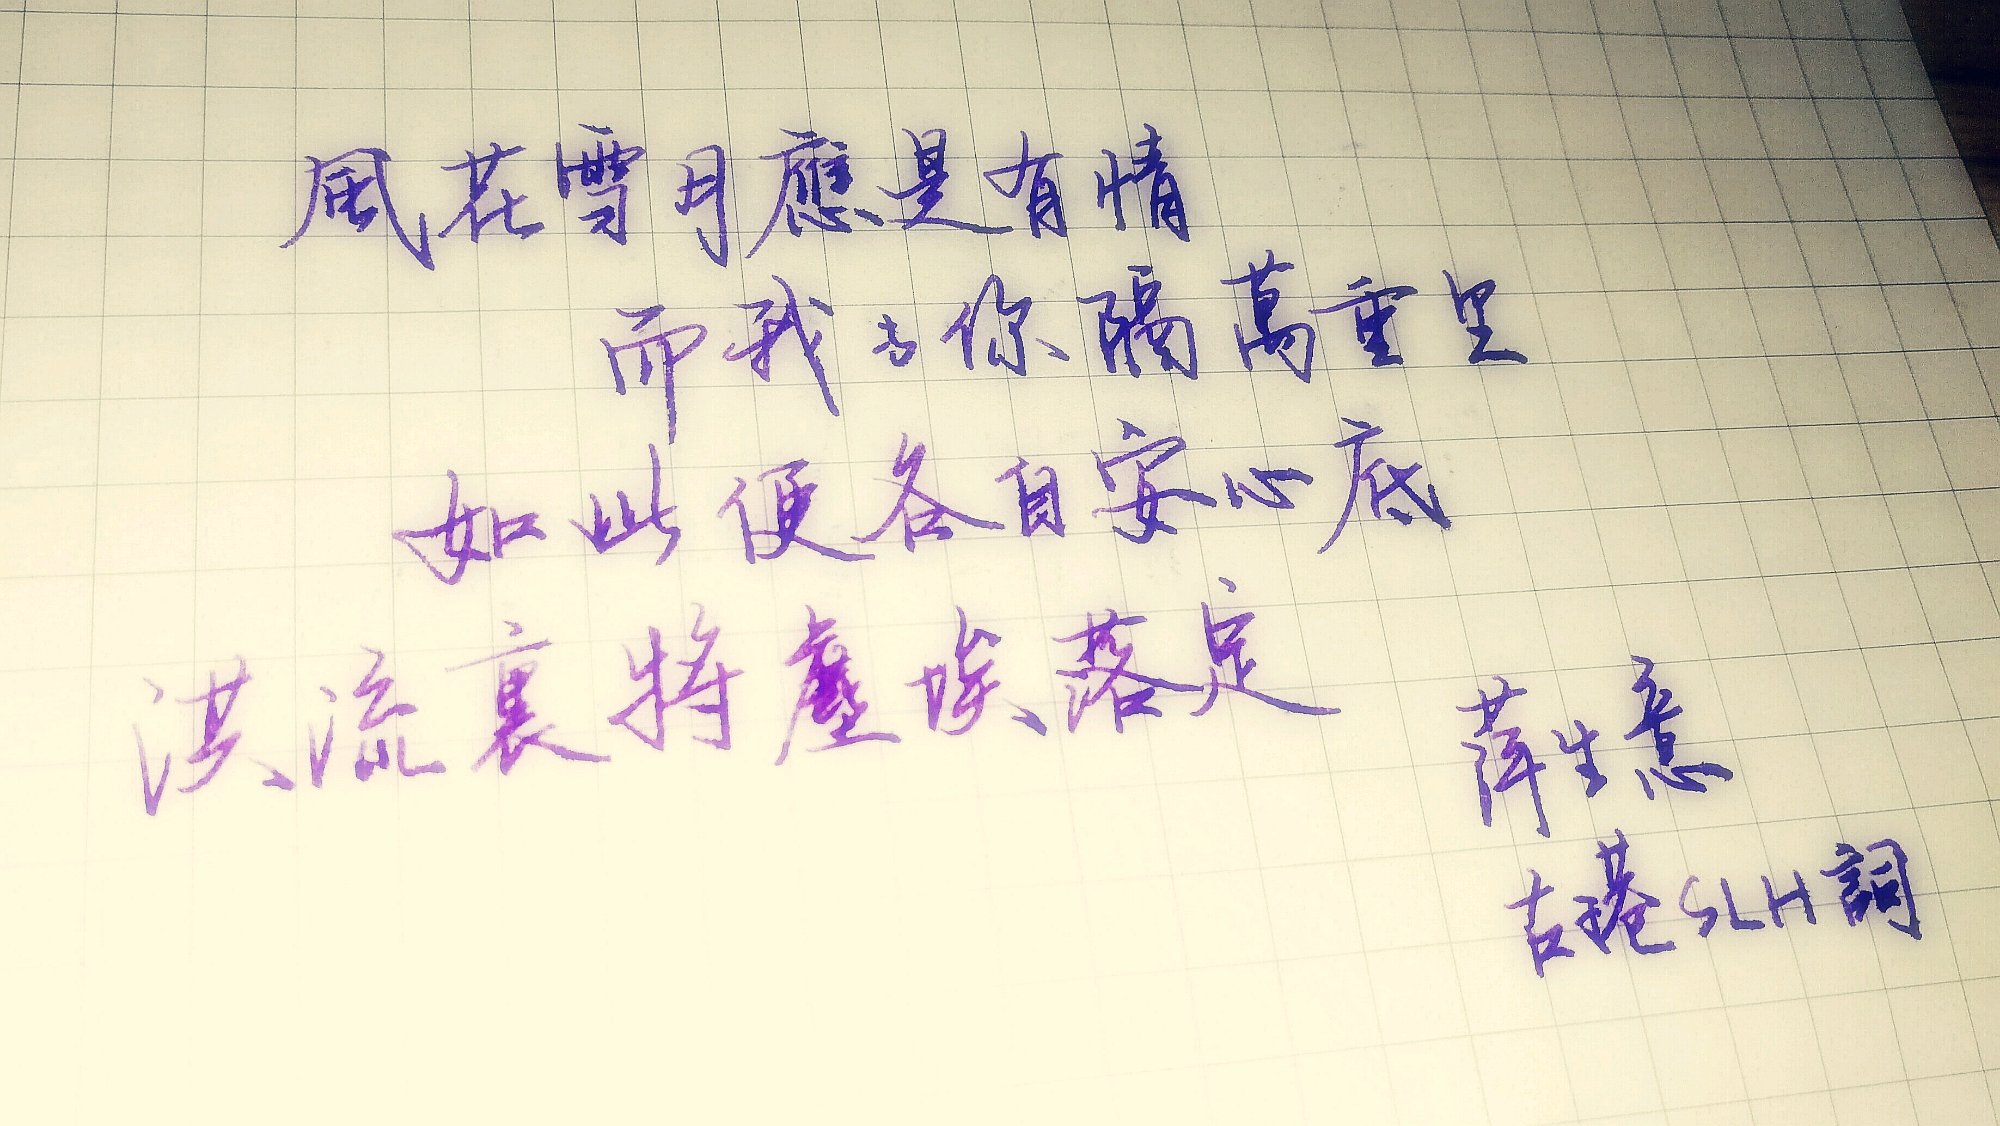 風花雪月應是有情
而我与你隔萬重里
如此便各自安心底
洪流裏將塵埃落定
萍生意
古巷SLH詞